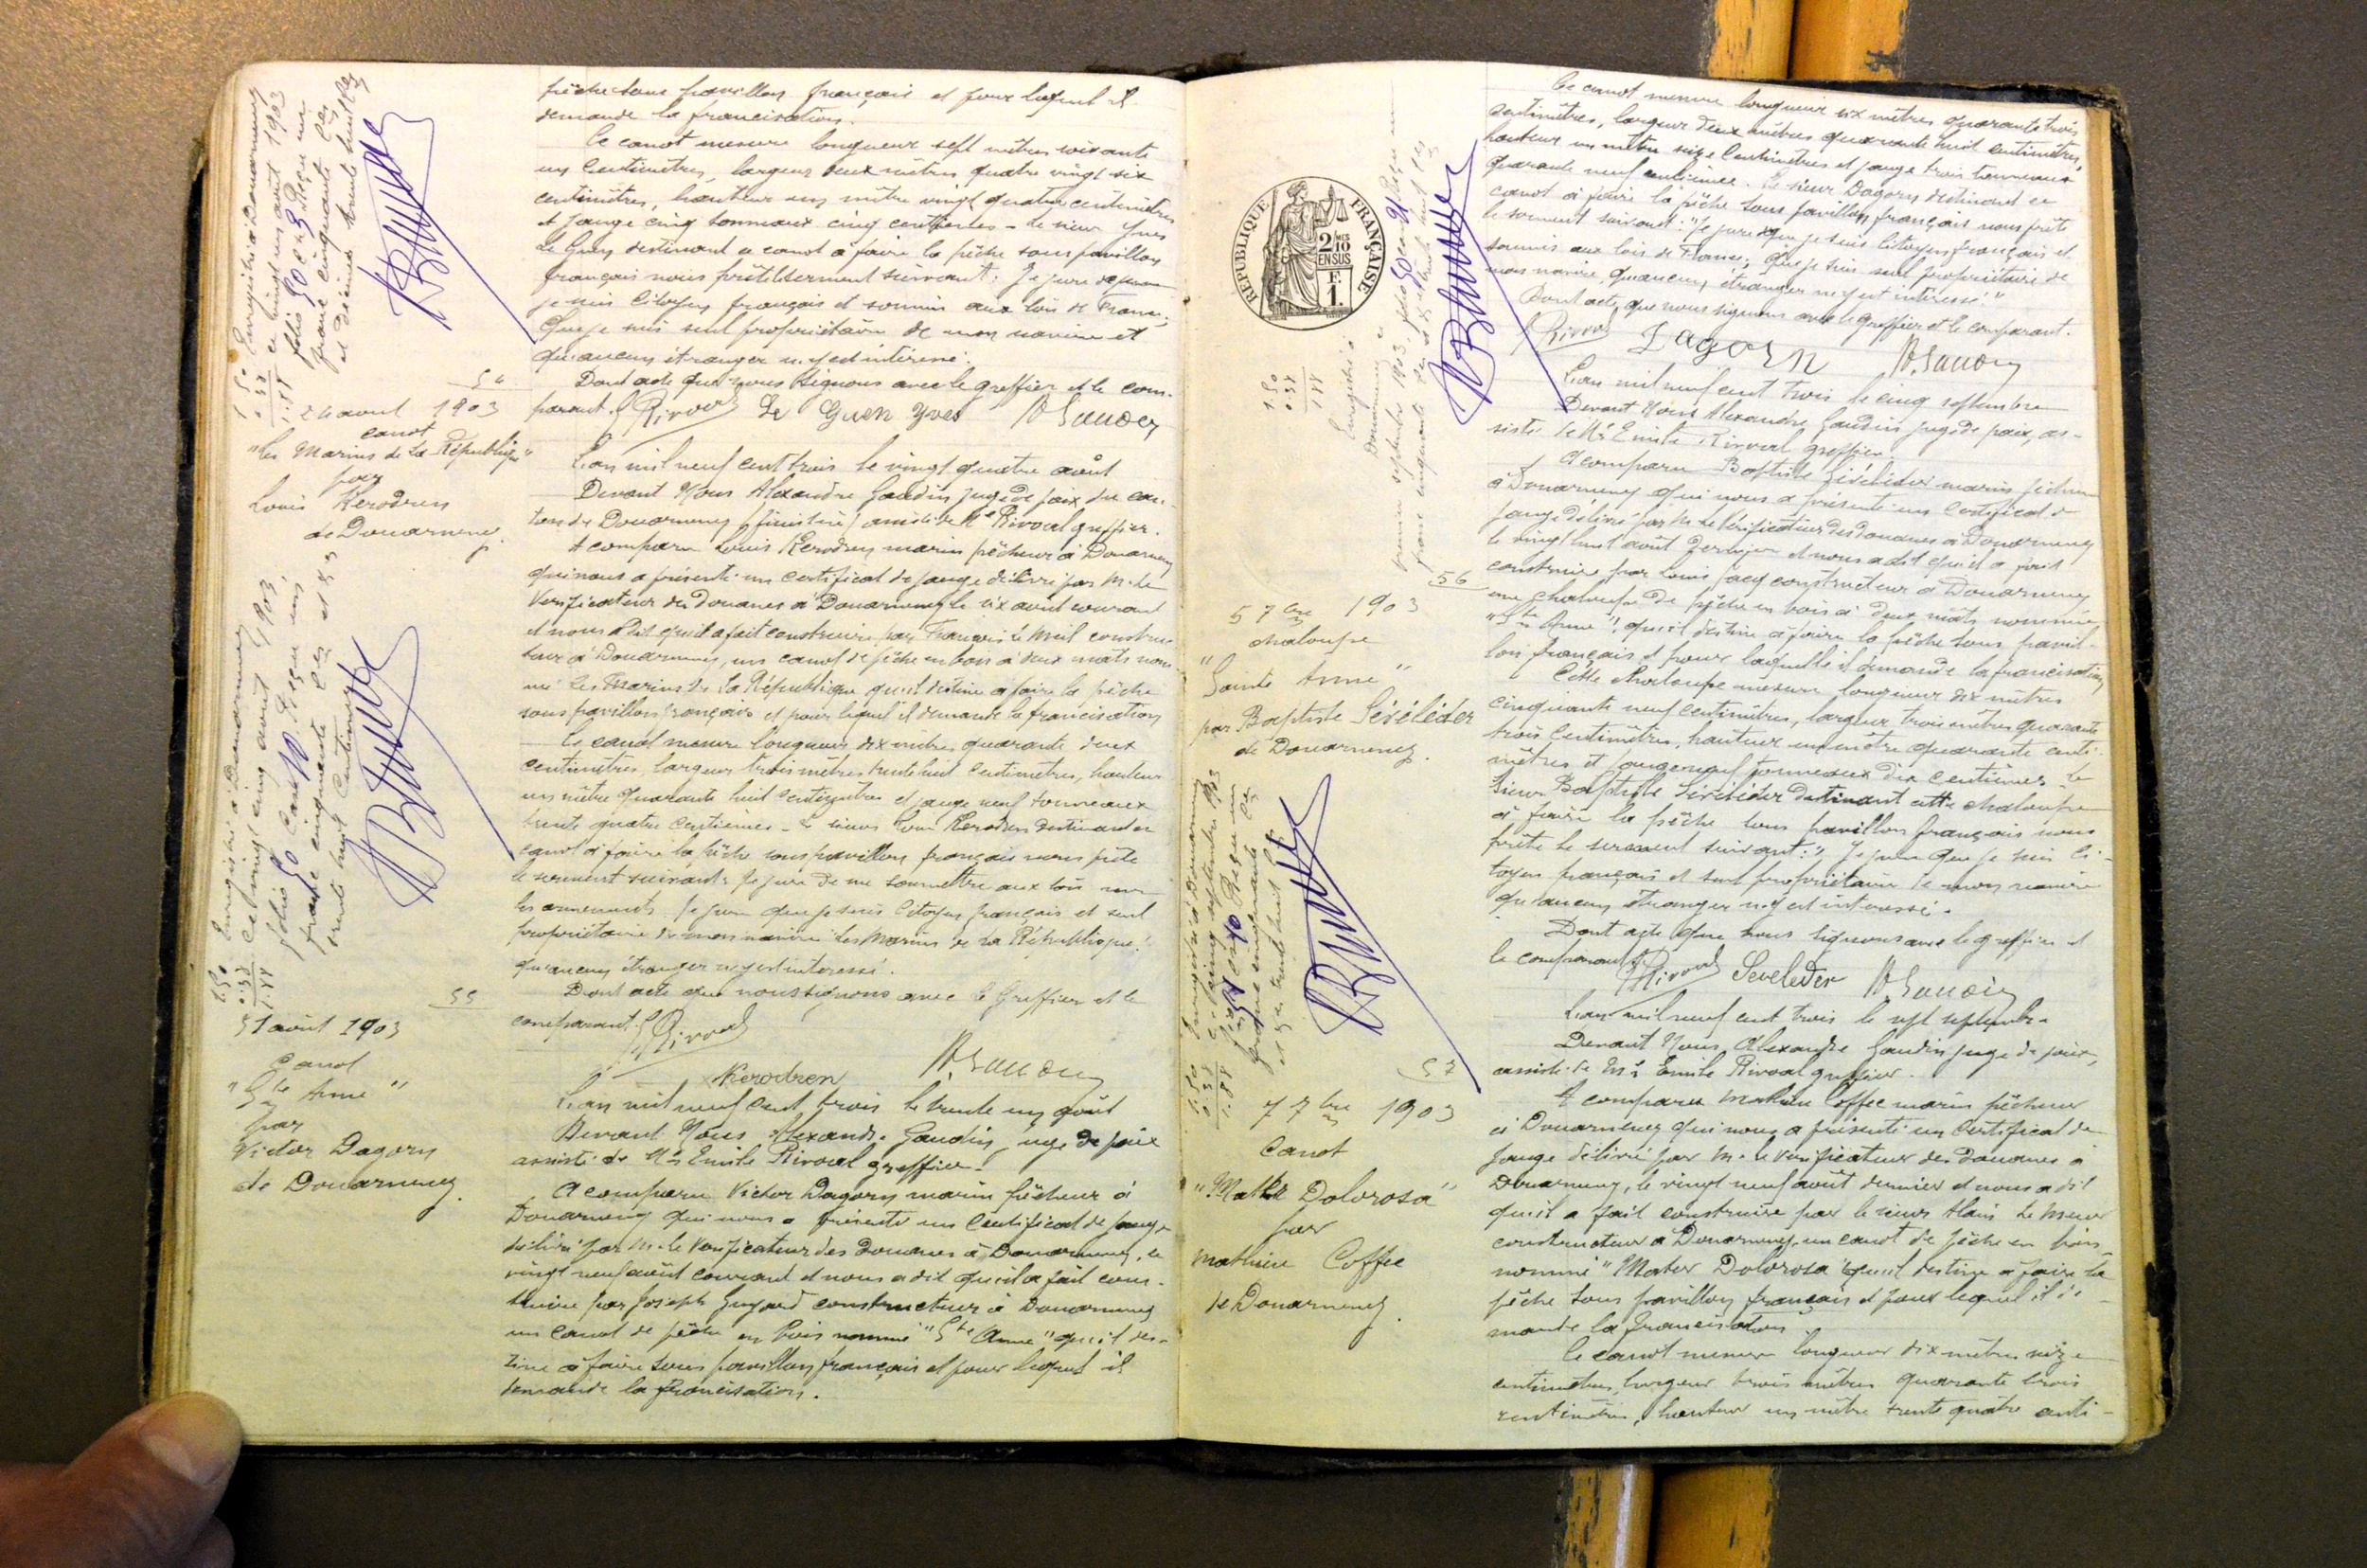 pêche sous pavillon français et pour lequel il
demande la francisation.
Ce canot mesure longueur sept mètres soixante
un centimètres, largeur deux mètres quatre vingt six
centimètres, hauteur un mètre vingt quatre centimètres
et jauge cinq tonneaux cinq centièmes - Le sieur Yves
Le Guen destinant ce canot à faire la pêche sous pavillon
français nous prête le serment suivant: Je jure que
je suis citoyen français et soumis aux lois de France;
Que je suis seul propriétaire de mon navire et
qu'aucun étranger n'y est intéressé.
Dont acte que nous signons avec le greffier et le com-
parant. Rivoal Le Guen Yves A. Gaudin
Enregistré à Douarnenez
ce vingt un août 1903
folio 50 case 9 Reçu un
franc cinquante ces
et décimes trente huit ces
1.50
0.38
1.88
54
24 aout 1903
canot
"les Marins de La République"
par
Louis Kerodren
de Douarnenez.
L'an mil neuf cent trois le vingt quatre août
Devant Nous Alexandre Gaudin juge de paix du can-
ton de Douarnenez (finistère) assisté de Me Rivoal greffier.
A comparu Louis Kerodren marin pêcheur à Douarnenez
qui nous a présenté un certificat de jauge délivré par M. le
Vérificateur des Douanes à Douarnenez le six août courant
et nous a dit qu'il a fait construire par François Le Meil construc-
teur à Douarnenez, un canot de pêche en bois à deux mâts nom-
mé les Marins de La République qu'il destine à faire la pêche
sous pavillon français et pour lequel il demande la francisation
Ce canot mesure longueur dix mètres quarante deux
centimètres, largeur trois mètres trente huit centimètres, hauteur
un mètre quarante huit centimètres et jauge neuf tonneaux
trente quatre centièmes - Le sieur Louis Kerodren destinant ce
canot à faire la pêche sous pavillon français nous prête
le serment suivant: Je jure de me soumettre aux lois sur
les armements. Je jure que je suis citoyen français et seul
propriétaire de mon navire "Les Marins de La République."
qu'aucun étranger n'y est intéressé.
Dont acte que nous signons avec le Greffier et le
comparant. Rivoal
Kerodren A. Gaudin
Enregistré à Douarnenez
ce vingt cinq aout 1903
folio 50 case 10. Reçu un
franc cinquante ces et d es
trente huit centimes
1.50
0.38
1.88
55
31 août 1903
Canot
"Ste Anne"
par
Victor Dagorn
de Douarnenez.
L'an mil neuf cent trois le trente un août
Devant Nous Alexandre Gaudin juge de paix
assisté de Me Emile Rivoal greffier.
A comparu Victor Dagorn marin pêcheur à
Douarnenez qui nous a présenté un Certificat de jauge
délivré par M. le Vérificateur des Douanes à Douarnenez, le
vingt neuf août courant et nous a dit qu'il a fait cons-
truire par Joseph Guyard constructeur à Douarnenez
un canot de pêche en bois nommé "Ste Anne" qu'il des-
tine à faire sous pavillon français et pour lequel il
demande la francisation.
RÉPUBLIQUE FRANÇAISE
2/10 MES
EN SUS
F.
1.
Ce canot mesure longueur six mètres quarante trois
centimètres, largeur deux mètres quarante huit centimètres,
hauteur un mètre seize centimètres et jauge trois tonneaux
quarante neuf centièmes. Le sieur Dagorn destinant ce
canot à faire la pêche sous pavillon français nous prête
le serment suivant: "Je jure que je suis citoyen français et
soumis aux lois de France; que je suis seul propriétaire de
mon navire, qu'aucun étranger n'y est intéressé."
Dont acte que nous signons avec le greffier et le comparant.
Rivoal Dagorn A. Gaudin
Enregistré à
Douarnenez ce
premier septembre 1903, folio 50 case Reçu un
franc cinquante ces et d es trente huit ces
1.50
0.38
1.88
56
5 7bre 1903
chaloupe
"Sainte Anne"
par Baptiste Sévéléder
de Douarnenez.
L'an mil neuf cent trois le cinq septembre
Devant Nous Alexandre Gaudin juge de paix, as-
sisté de Me Emile Rivoal greffier.
A comparu Baptiste Sévéléder marin pêcheur
à Douarnenez qui nous a présenté un Certificat de
jauge délivré par M. le Vérificateur des Douanes à Douarnenez
le vingt huit août dernier et nous a dit qu'il a fait
construire par Louis Jacq constructeur à Douarnenez
une chaloupe de pêche en bois à deux mâts nommée
"Ste Anne", qu'il destine à faire la pêche sous pavil-
lon français et pour laquelle il demande la francisation
Cette chaloupe mesure longueur dix mètres
cinquante neuf centimètres, largeur trois mètres quarante
trois centimètres, hauteur un mètre quarante centi-
mètres et jauge neuf tonneaux dix centièmes. Le
sieur Baptiste Sévéléder destinant cette chaloupe
à faire la pêche sous pavillon français nous
prête le serment suivant: "Je jure que je suis ci-
toyen français et seul propriétaire de mon navire
qu'aucun étranger n'y est intéressé.
Dont acte que nous signons avec le greffier et
le comparant. Rivoal Seveleder A. Gaudin
Enregistré à Douarnenez
ce cinq septembre 1903
Reçu un
franc cinquante ces
et d es trente huit ces
1.50
0.38
1.88
57
7 7bre 1903
Canot
"Mater Dolorosa"
par
Mathieu Coffec
de Douarnenez.
L'an mil neuf cent trois le sept septembre
Devant Nous, Alexandre Gaudin juge de paix,
assisté de Me Emile Rivoal greffier.
A comparu Mathieu Coffec marin pêcheur
à Douarnenez qui nous a présenté un Certificat de
jauge délivré par M. le Vérificateur des Douanes à
Douarnenez, le vingt neuf août dernier et nous a dit
qu'il a fait construire par le sieur Alain Le Meur
constructeur à Douarnenez, un canot de pêche en bois
nommé "Mater Dolorosa" qu'il destine à faire la
pêche sous pavillon français et pour lequel il de-
mande la francisation.
Ce canot mesure longueur dix mètres seize
centimètres, largeur trois mètres quarante trois
centimètres, hauteur un mètre trente quatre centi-